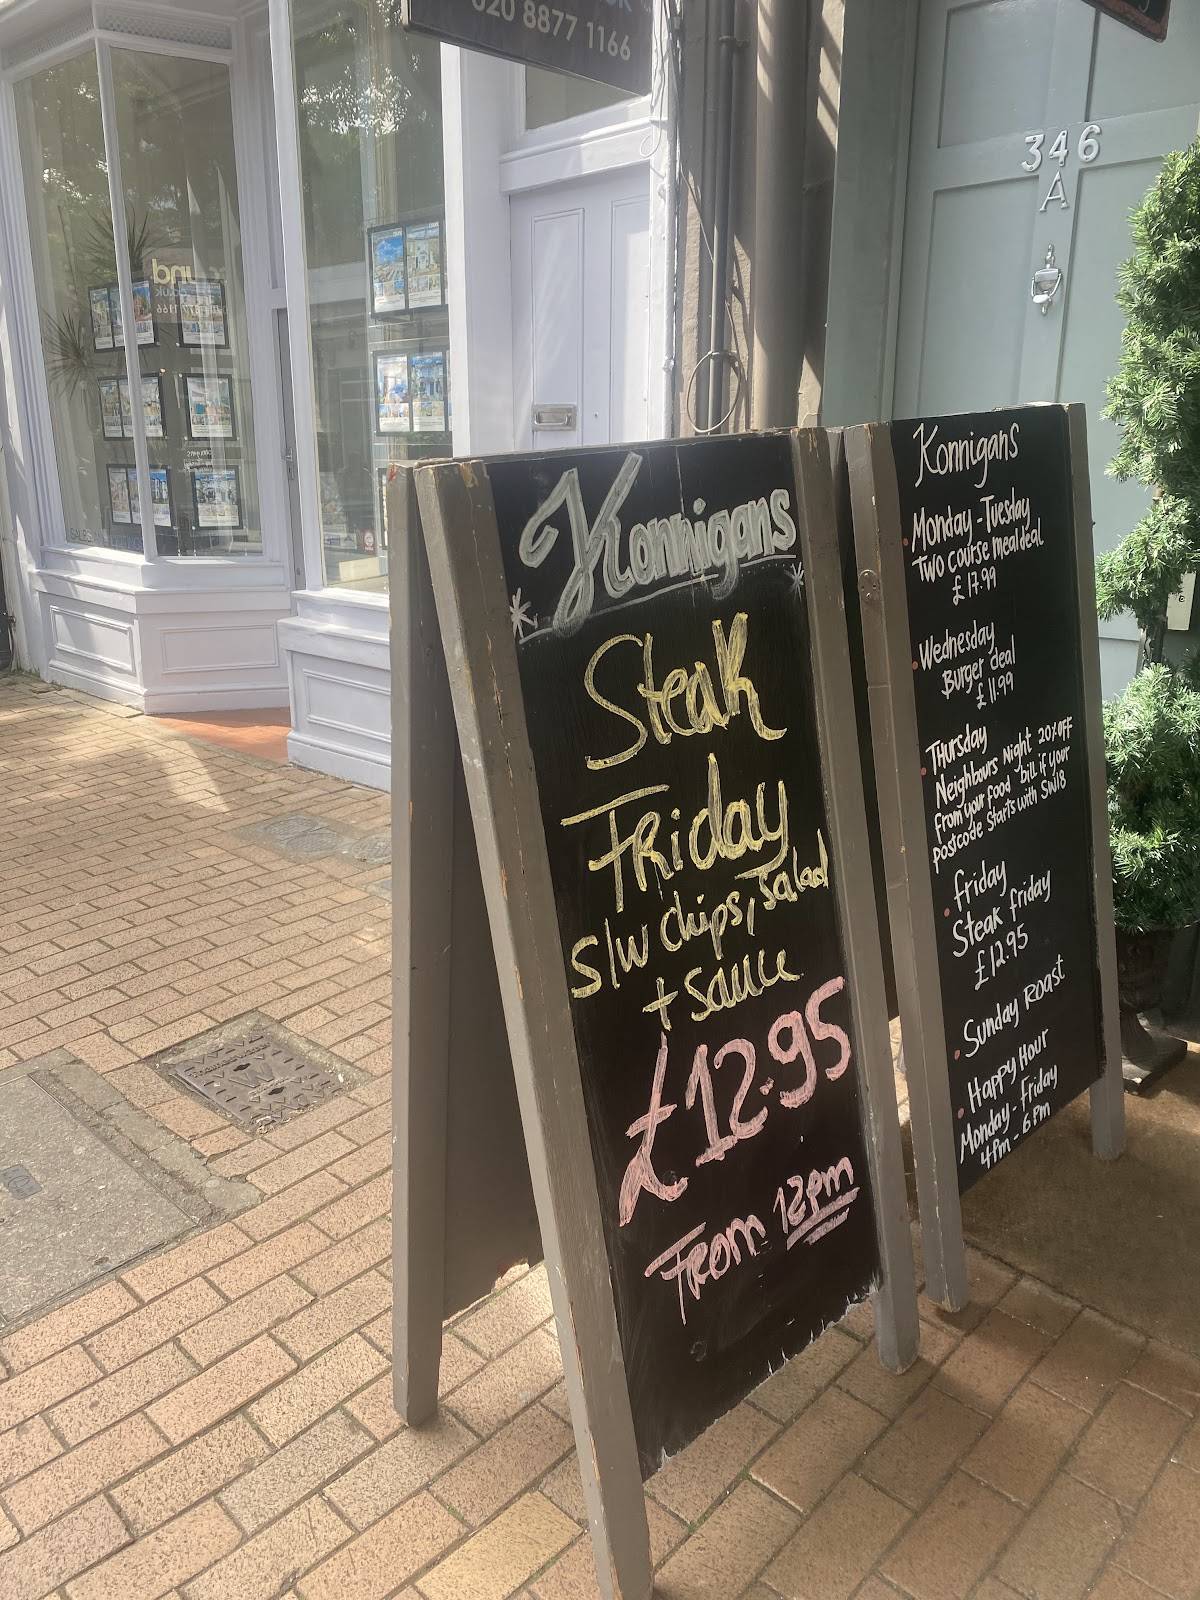 020 8877 1166
346
A
Konnigans
Steak
Friday
S/W Chips, Salad
+ Sauce
£12.95
From 12pm
Konnigans
Monday - Tuesday
Two course meal deal
£17.99
Wednesday
Burger deal
£11.99
Thursday
Neighbours Night 20% OFF
from your food bill if your
postcode starts with SW18
friday
Steak friday
£12.95
Sunday Roast
Happy Hour
Monday - Friday
4pm - 6pm